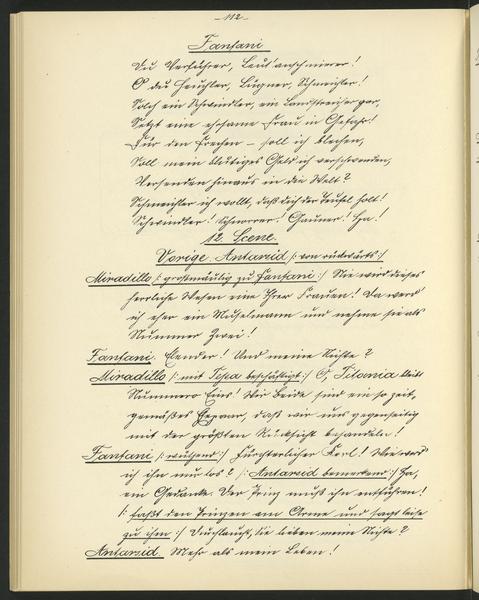 - 112 -
Fanfani
Du Verführer, Leut'anschmierer!
O du Heuchler, Lügner, Schmeichler!
Solch ein Schwindler, ein Landstreicher gar,
Setzt eine ehrsame Frau in Gefahr!
Für den Frechen – soll ich blechen,
Soll mein blutiges Geld ich verschwenden,
Versenden hinaus in die Welt?
Schmeichler ich wollt, daß dich der Teufel holt!
Schwindler! Schmierer! Gauner! Ha!
12. Scene.
Vorige. Antarsid /: von rückwärts :/
Miradillo /: großmäulig zu Fanfani :/ Nie wird dieses
herrliche Wesen eine Ihrer Frauen! Da werd
ich eher ein Muselmann und nehme sie als
Nummer Zwei!
Fanfani. Elender! Und meine Nichte?
Miradillo /: mit Tessa beschäftigt :/ O, Titania bleibt
Nummero Eins! Wir Beide sind ein so zeit,
gemäßes Ehepaar, daß wir uns gegenseitig
mit der größten Rücksicht behandeln!
Fanfani /: wüthend :/ Fürchterlicher Kerl! Wie werd
ich ihn nur los? /: Antarsid bemerkend :/ Ha,
ein Gedanke. Der Prinz muß ihn entführen!
/: faßt den Prinzen am Arme und sagt leise
zu ihm :/ Durchlaucht, Sie lieben meine Nichte?
Antarsid. Mehr als mein Leben!